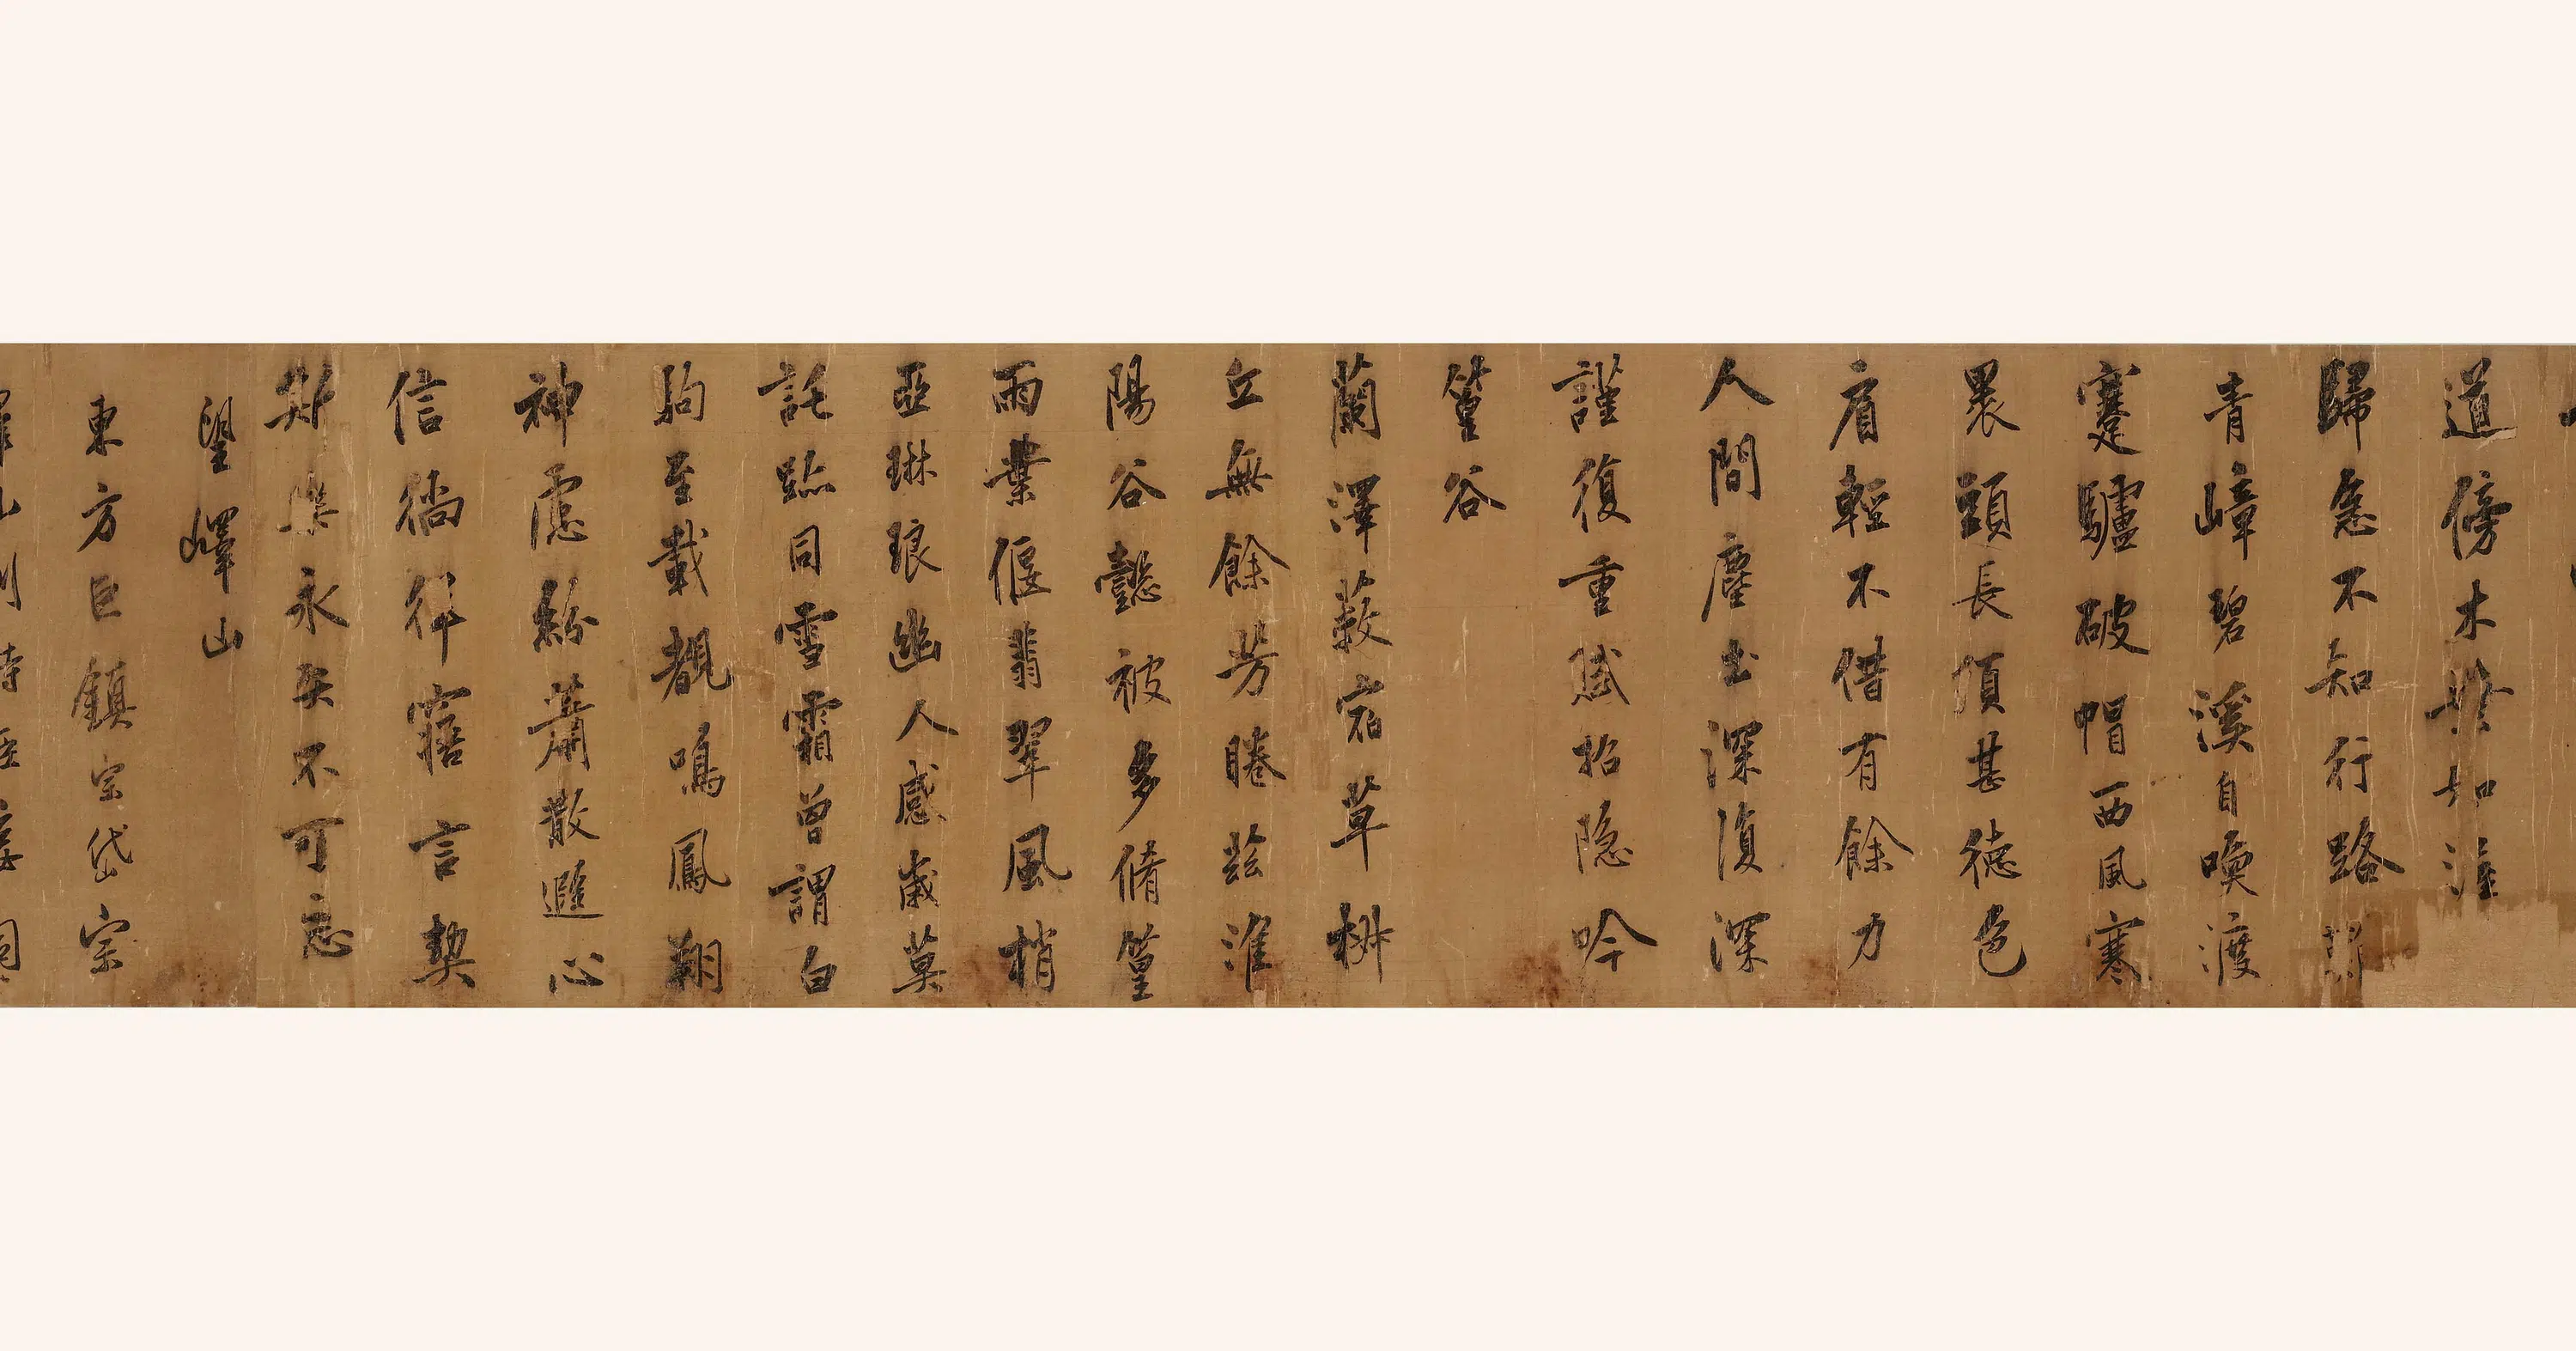 道傍木
歸急不知行路
青嶂碧溪自喚渡
蹇驢破帽西風寒
畏頭長項甚德色
肩輕不借有餘力
人間塵土深復深
謹復重賦招隐吟
篁谷
蘭澤蓺宿草樹
丘無餘芳睠茲淮
陽谷懿被多脩篁
雨葉偃翡翠風梢
亞琳琅幽人感歲莫
託跡同雪霜曾謂白
駒至載覩鳴鳳翔
神慮紛蕭散遐心
信徜徉寤言契
斯樂永矢不可忘
望嶧山
東方巨鎮宗岱宗